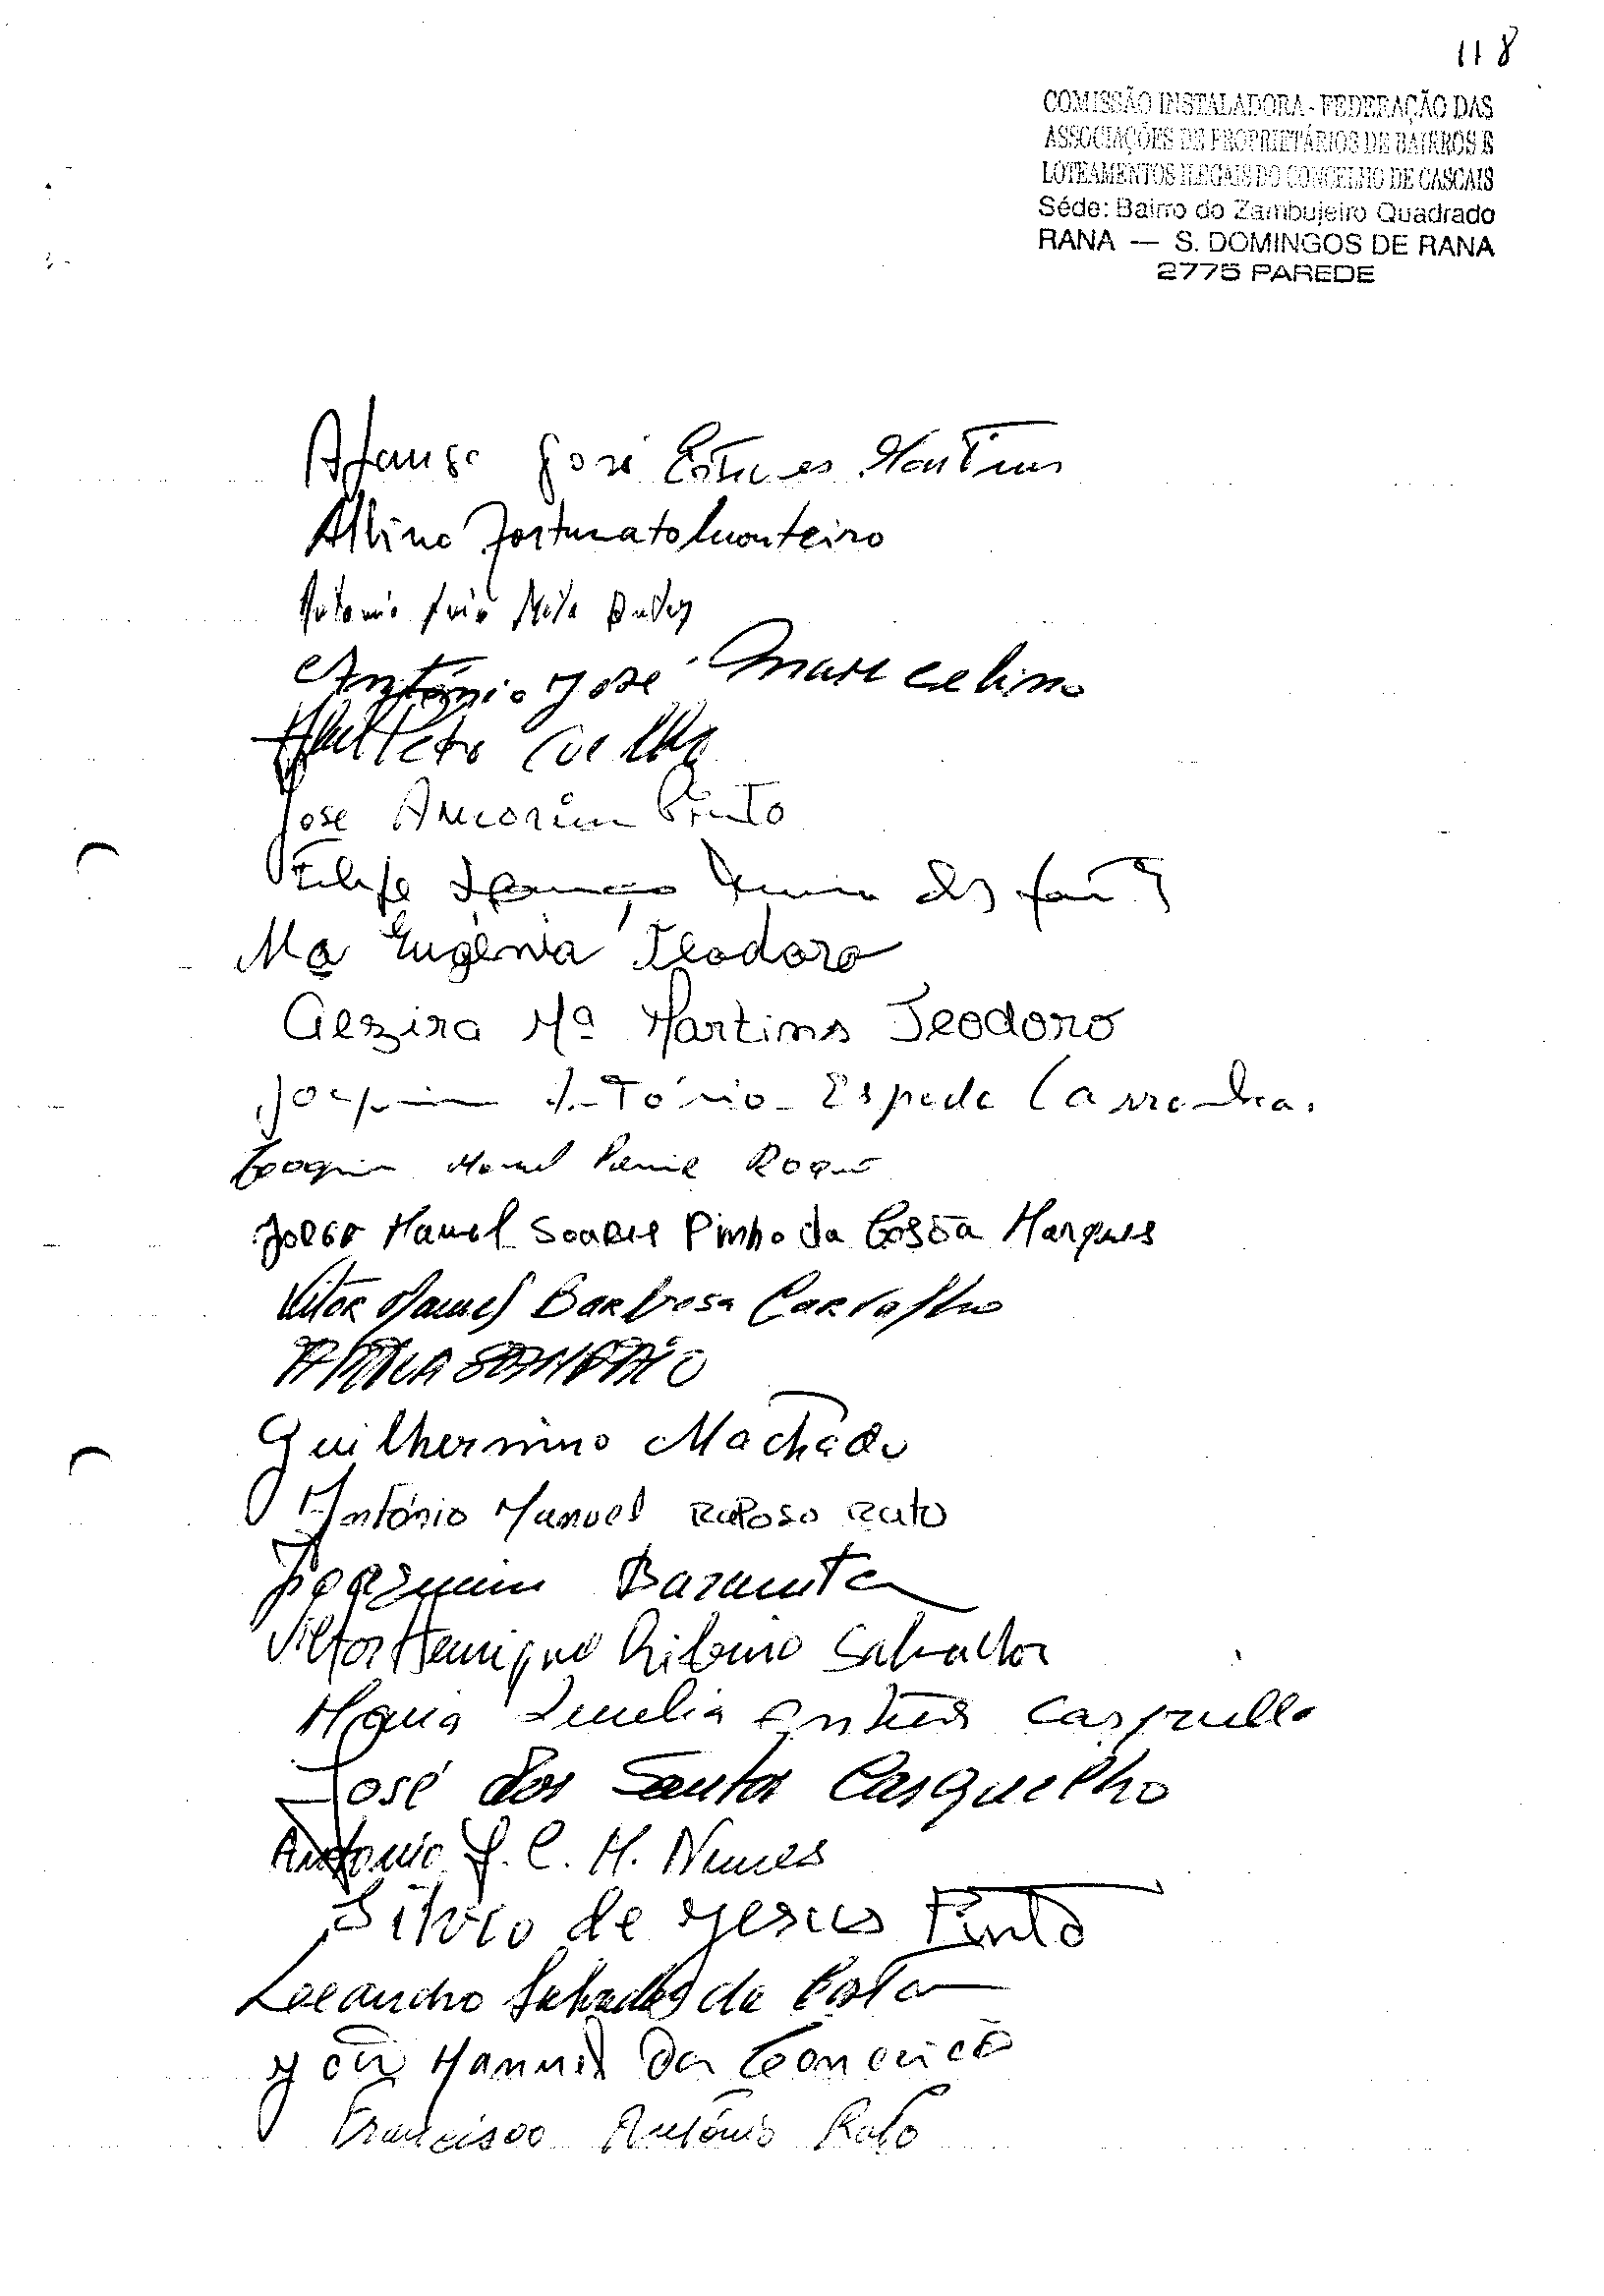 118
COMISSÃO INSTALADORA - FEDERAÇÃO DAS
ASSOCIAÇÕES DE PROPRIETÁRIOS DE BAIRROS E
LOTEAMENTOS ILEGAIS DO CONCELHO DE CASCAIS
Séde: Bairro do Zambujeiro Quadrado
RANA — S. DOMINGOS DE RANA
2775 PAREDE
Afonso José Esteves Martins
Albino Fortunato Monteiro
Antonio Luis Mota
António José Marcelino
Abel Peto Coelho
José Amorim Pinto
Filipe dos
Mª Eugénia Teodoro
Alzira Mª Martins Teodoro
Joaquim António Espada Carranhas
Joaquim Manuel Roque
Jorge Manuel Soares Pinho da Costa Marques
Vitor Manuel Barbosa Carvalho
SAMPAIO
Guilhermino Machado
António Manuel Raposo Rato
Joaquim Barauta
Victor Henrique Ribeiro Salvador
Maria Antunes Casquilho
José dos Santos Casquelho
Antonio J. C. M. Nunes
Silvio de Jesus Pinto
Leandro Salvador da Costa
José Manuel da Conceição
Francisco António Rato